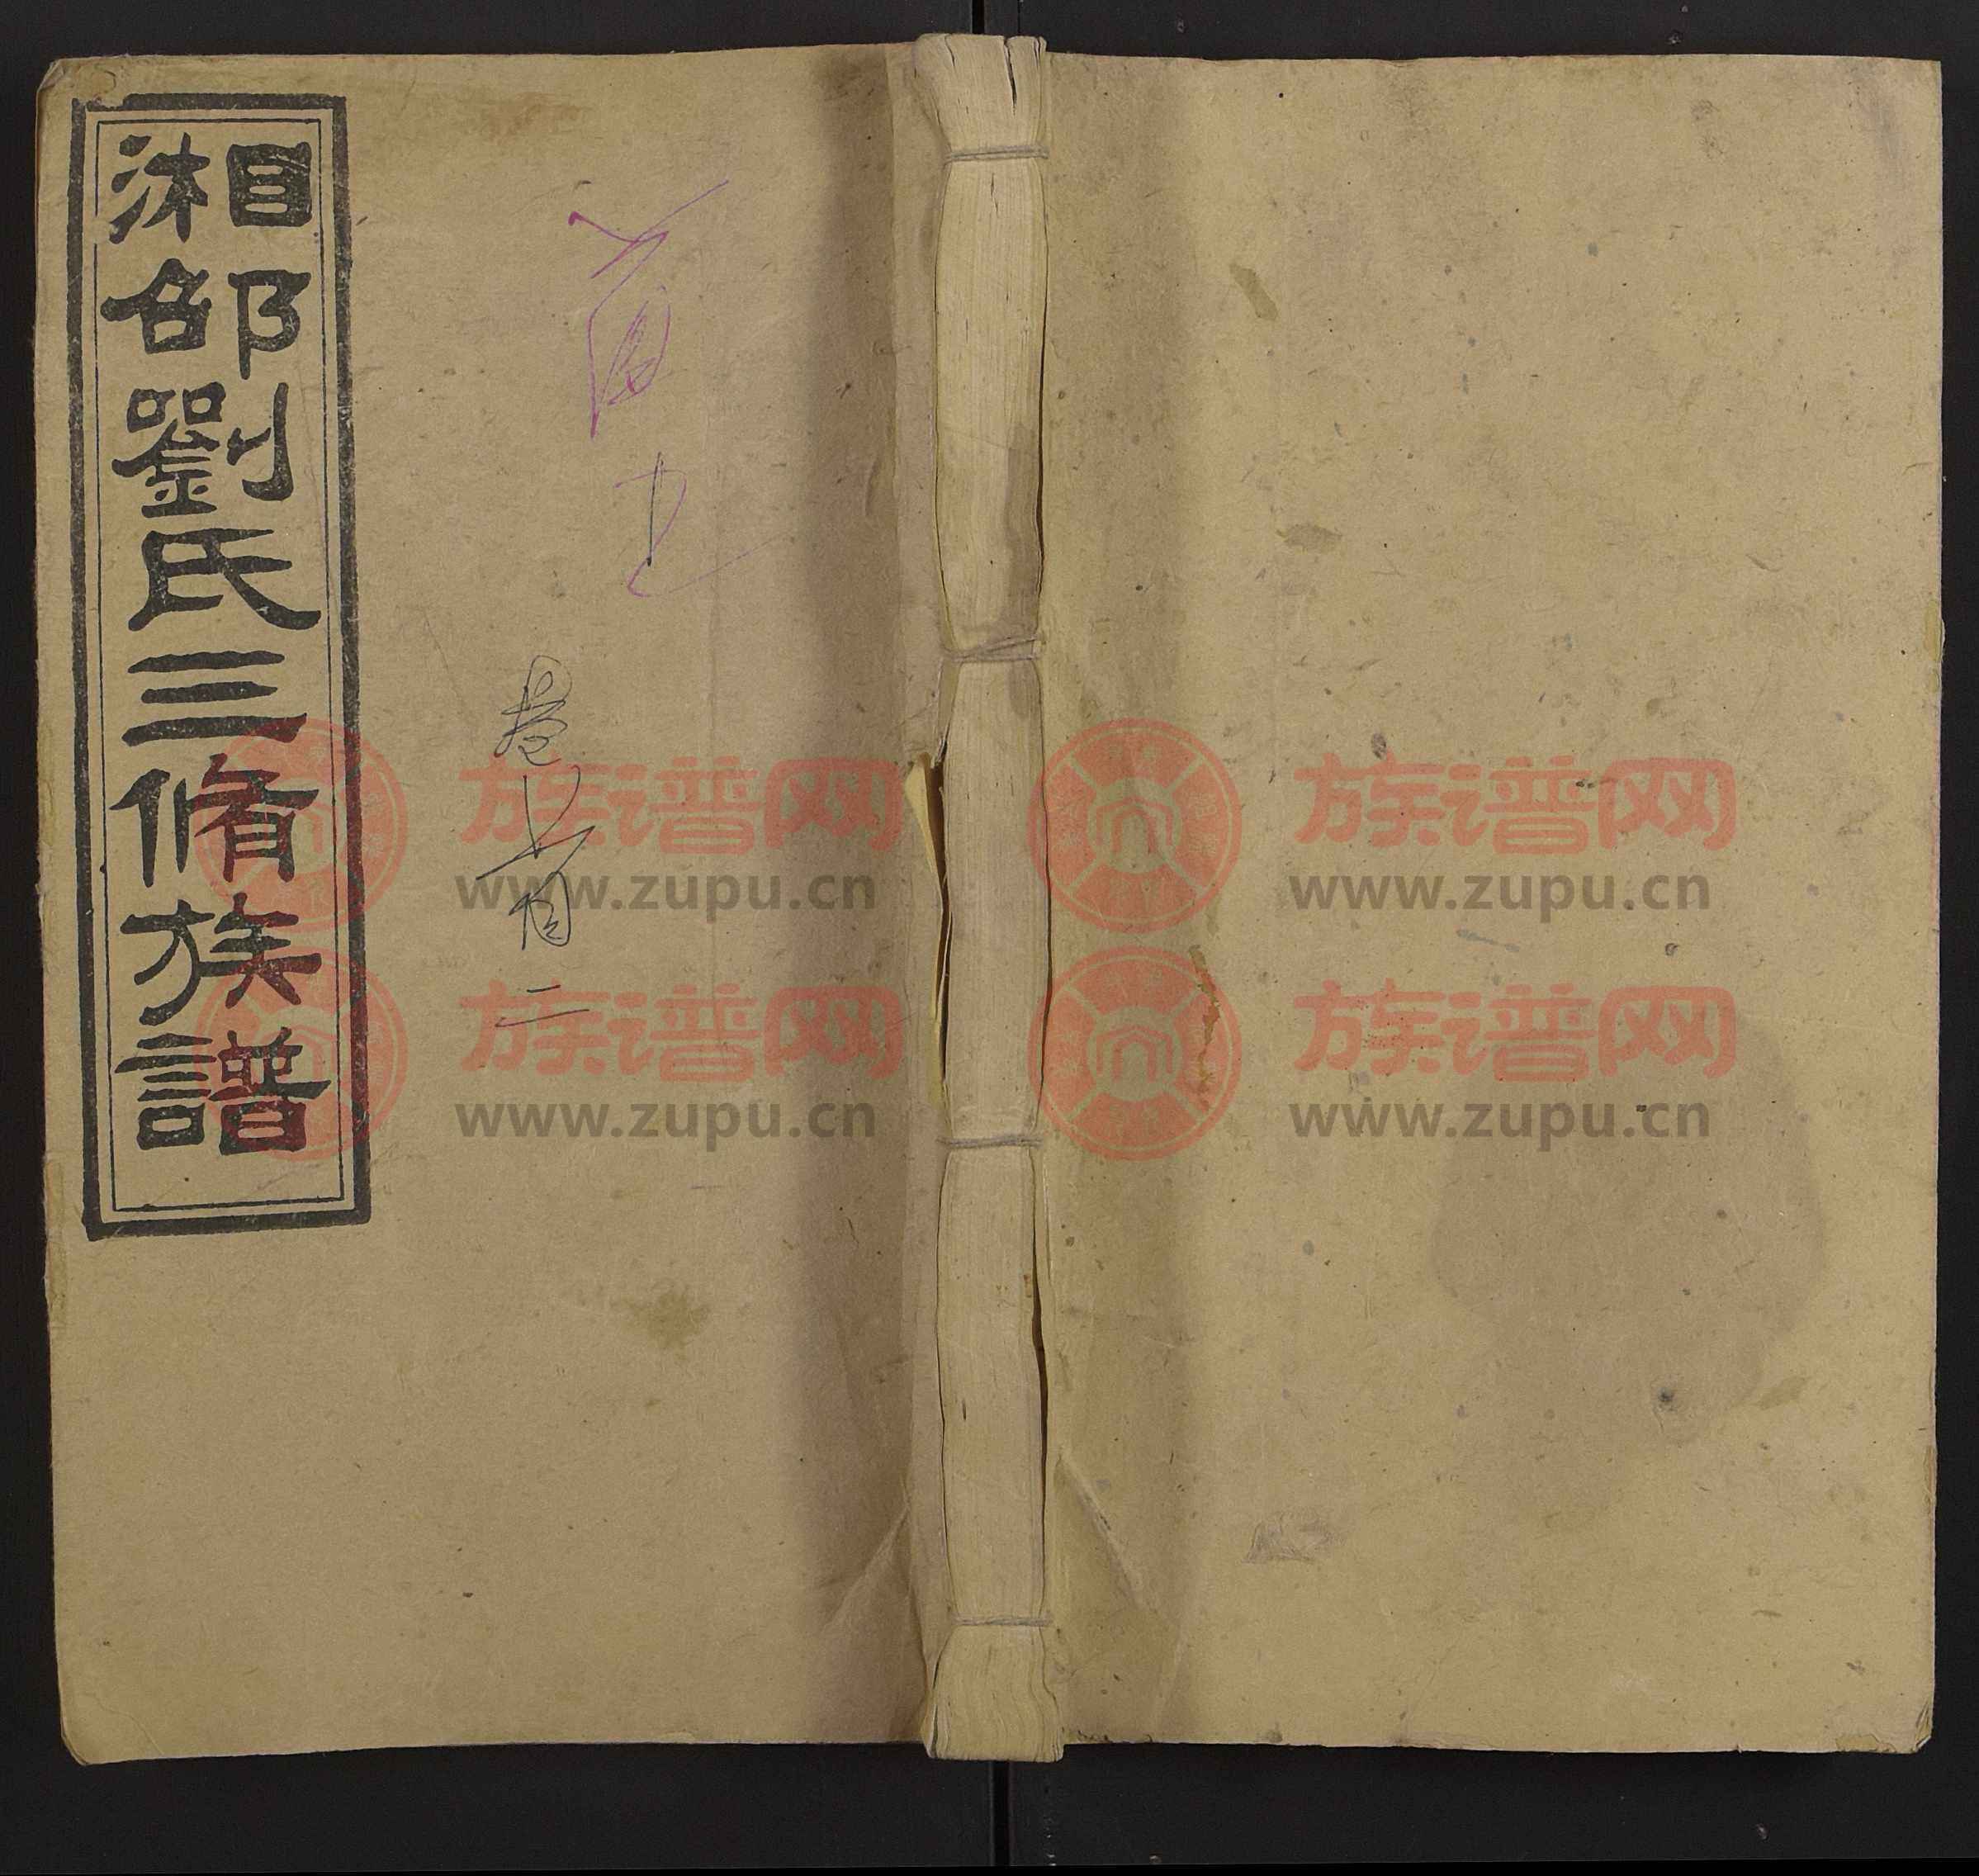 湘邵劉氏三脩族譜
卷首二
族谱网
www.zupu.cn
族谱网
www.zupu.cn
族谱网
www.zupu.cn
族谱网
www.zupu.cn